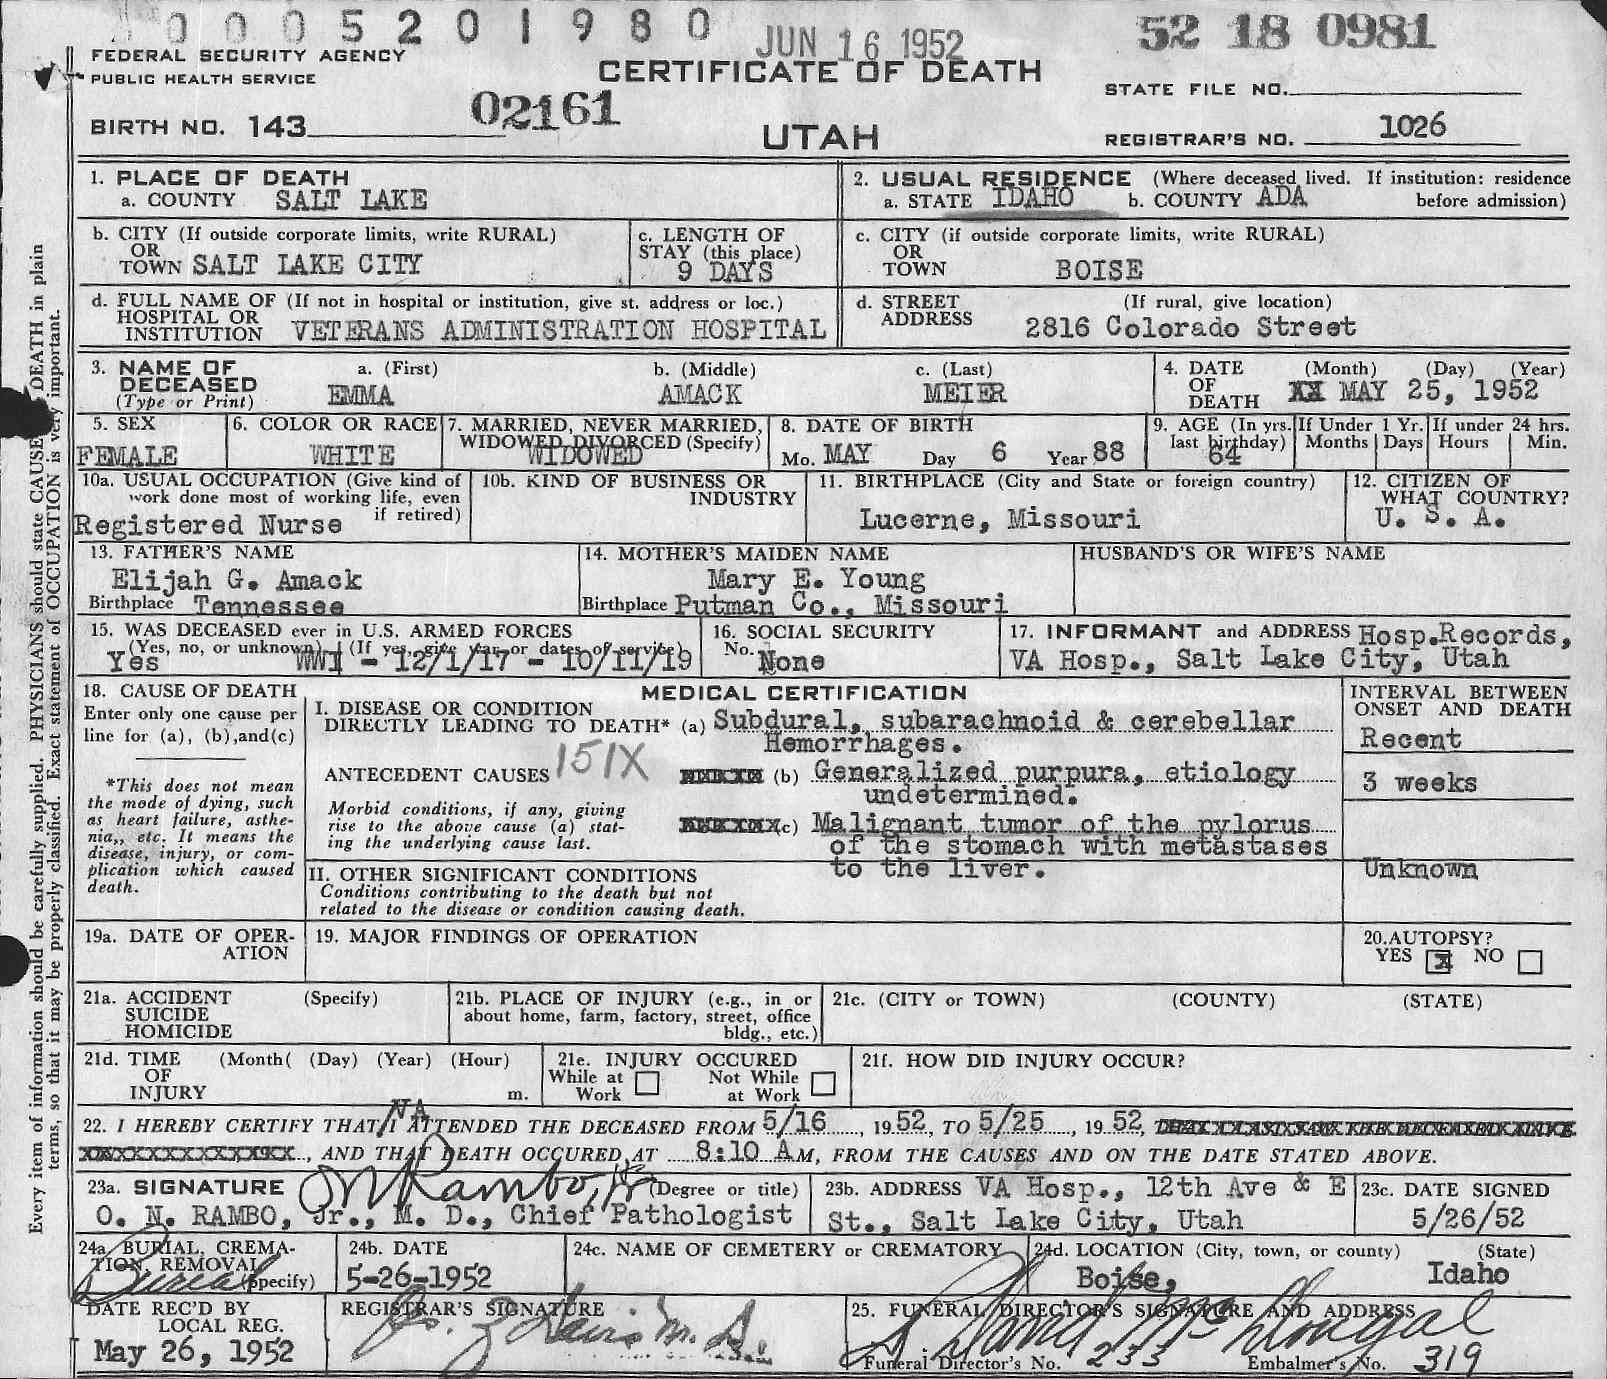 0 0 0 5 2 0 1 9 8 0
JUN 16 1952
52 18 0981
FEDERAL SECURITY AGENCY
PUBLIC HEALTH SERVICE
CERTIFICATE OF DEATH
STATE FILE NO.
BIRTH NO. 143
02161
UTAH
REGISTRAR'S NO. 1026
Every item of information should be carefully supplied. PHYSICIANS should state CAUSE DEATH in plain
terms, so that it may be properly classified. Exact statement of OCCUPATION is very important.
1. PLACE OF DEATH
a. COUNTY SALT LAKE
2. USUAL RESIDENCE (Where deceased lived. If institution: residence
a. STATE IDAHO b. COUNTY ADA before admission)
b. CITY (If outside corporate limits, write RURAL)
OR
TOWN SALT LAKE CITY
c. LENGTH OF
STAY (this place)
9 DAYS
c. CITY (if outside corporate limits, write RURAL)
OR
TOWN BOISE
d. FULL NAME OF (If not in hospital or institution, give st. address or loc.)
HOSPITAL OR
INSTITUTION VETERANS ADMINISTRATION HOSPITAL
d. STREET (If rural, give location)
ADDRESS 2816 Colorado Street
3. NAME OF a. (First) b. (Middle) c. (Last)
DECEASED
(Type or Print) EMMA AMACK MEIER
4. DATE (Month) (Day) (Year)
OF
DEATH XX MAY 25, 1952
5. SEX
FEMALE
6. COLOR OR RACE
WHITE
7. MARRIED, NEVER MARRIED,
WIDOWED, DIVORCED (Specify)
WIDOWED
8. DATE OF BIRTH
Mo. MAY Day 6 Year 88
9. AGE (In yrs.
last birthday)
64
If Under 1 Yr.
Months Days
If under 24 hrs.
Hours Min.
10a. USUAL OCCUPATION (Give kind of
work done most of working life, even
if retired)
Registered Nurse
10b. KIND OF BUSINESS OR
INDUSTRY
11. BIRTHPLACE (City and State or foreign country)
Lucerne, Missouri
12. CITIZEN OF
WHAT COUNTRY?
U. S. A.
13. FATHER'S NAME
Elijah G. Amack
Birthplace Tennessee
14. MOTHER'S MAIDEN NAME
Mary E. Young
Birthplace Putman Co., Missouri
HUSBAND'S OR WIFE'S NAME
15. WAS DECEASED ever in U.S. ARMED FORCES
(Yes, no, or unknown) (If yes, give war or dates of service)
Yes WWI - 12/1/17 - 10/11/19
16. SOCIAL SECURITY
No. None
17. INFORMANT and ADDRESS Hosp.Records,
VA Hosp., Salt Lake City, Utah
18. CAUSE OF DEATH
Enter only one cause per
line for (a), (b),and(c)
*This does not mean
the mode of dying, such
as heart failure, asthe-
nia,, etc. It means the
disease, injury, or com-
plication which caused
death.
MEDICAL CERTIFICATION
I. DISEASE OR CONDITION
DIRECTLY LEADING TO DEATH* (a) Subdural, subarachnoid & cerebellar
Hemorrhages.
ANTECEDENT CAUSES 151X (b) Generalized purpura, etiology
undetermined.
Morbid conditions, if any, giving
rise to the above cause (a) stat-
ing the underlying cause last.
(c) Malignant tumor of the pylorus
of the stomach with metastases
to the liver.
II. OTHER SIGNIFICANT CONDITIONS
Conditions contributing to the death but not
related to the disease or condition causing death.
INTERVAL BETWEEN
ONSET AND DEATH
Recent
3 weeks
Unknown
19a. DATE OF OPER-
ATION
19. MAJOR FINDINGS OF OPERATION
20.AUTOPSY?
YES X NO
21a. ACCIDENT (Specify)
SUICIDE
HOMICIDE
21b. PLACE OF INJURY (e.g., in or
about home, farm, factory, street, office
bldg., etc.)
21c. (CITY or TOWN) (COUNTY) (STATE)
21d. TIME (Month( (Day) (Year) (Hour)
OF
INJURY m.
21e. INJURY OCCURED
While at Not While
Work at Work
21f. HOW DID INJURY OCCUR?
VA
22. I HEREBY CERTIFY THAT I ATTENDED THE DECEASED FROM 5/16, 1952, TO 5/25, 1952,
, AND THAT DEATH OCCURED AT 8:10 AM, FROM THE CAUSES AND ON THE DATE STATED ABOVE.
23a. SIGNATURE ON Rambo, Jr (Degree or title)
O. N. RAMBO, Jr., M. D., Chief Pathologist
23b. ADDRESS VA Hosp., 12th Ave & E
St., Salt Lake City, Utah
23c. DATE SIGNED
5/26/52
24a. BURIAL, CREMA-
TION, REMOVAL
(Specify) Burial
24b. DATE
5-26-1952
24c. NAME OF CEMETERY or CREMATORY
24d. LOCATION (City, town, or county) (State)
Boise, Idaho
DATE REC'D BY
LOCAL REG.
May 26, 1952
REGISTRAR'S SIGNATURE
25. FUNERAL DIRECTOR'S SIGNATURE AND ADDRESS
David McDougal
Funeral Director's No. 233 Embalmer's No. 319